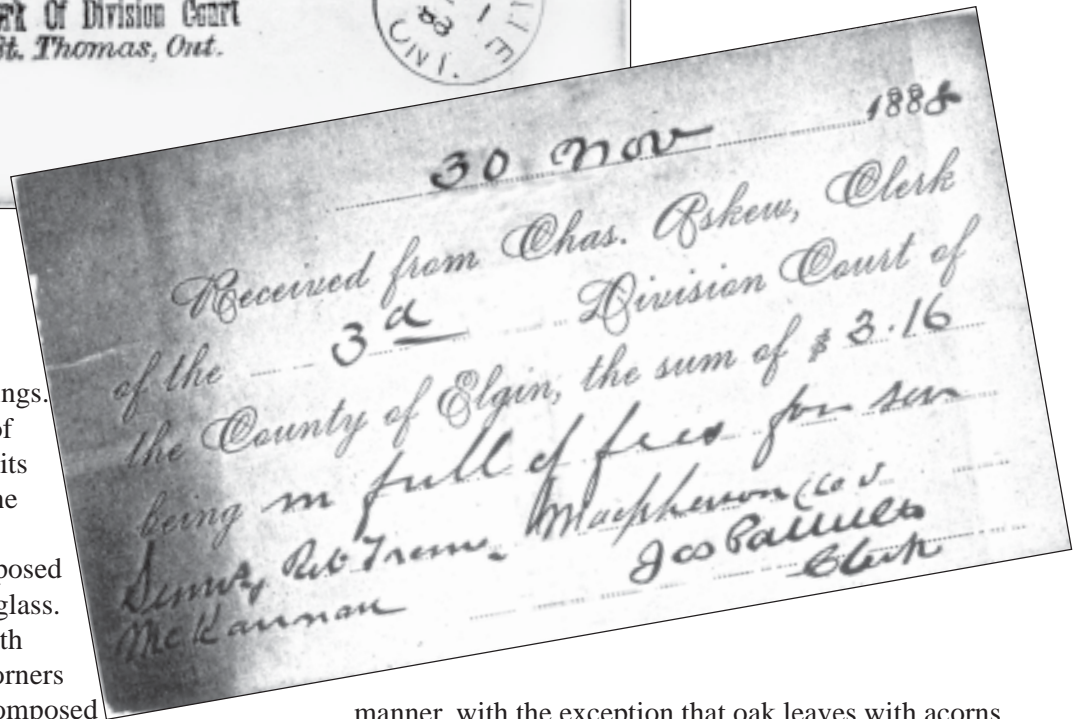 Of Division Court
St. Thomas, Ont.
30 Nov 1888
Received from Chas. Askew, Clerk
of the 3d Division Court of
the County of Elgin, the sum of $ 3.16
being in full of fees for
Macpherson
McKannan Clerk
ngs.
of
its
posed
glass.
th
orners
omposed
manner, with the exception that oak leaves with acorns